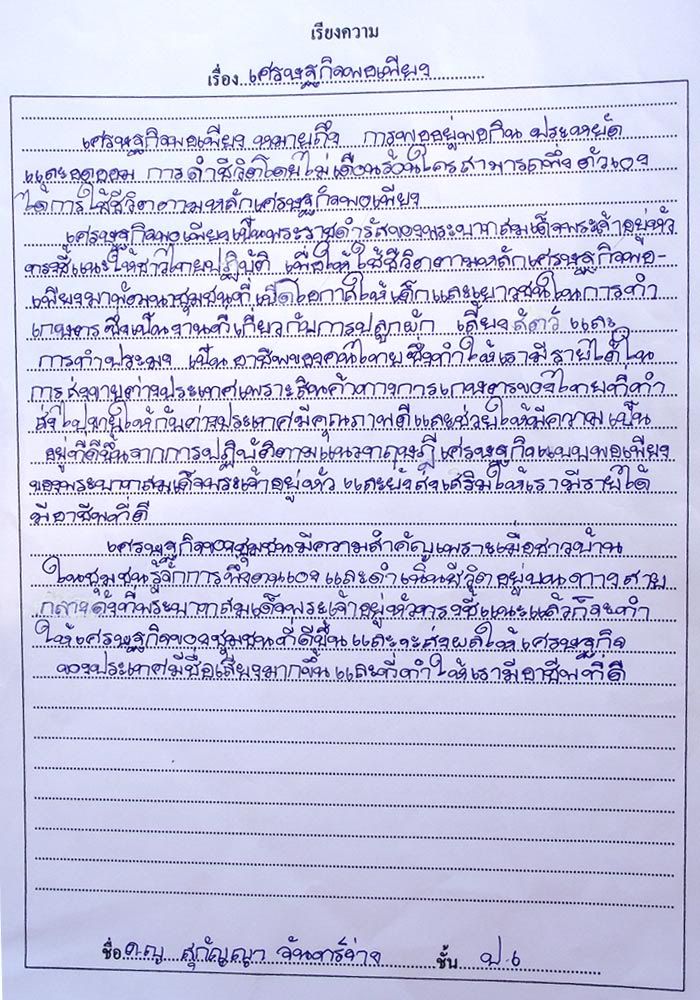 เรียงความ
เรื่อง เศรษฐกิจพอเพียง
เศรษฐกิจพอเพียง หมายถึง การพออยู่พอกิน ประหยัด
และอดออม การดำชีวิตโดยไม่เดือนร้อนใครสามารถพึ่งตัวเอง
ได้การใช้ชีวิตตามหลักเศรษฐกิจพอเพียง
เศรษฐกิจพอเพียงเป็นพระราชดำรัสของพระบาทสมเด็จพระเจ้าอยู่หัว
ทรงชี้แนะให้ชาวไทยปฏิบัติ เพื่อให้ใช้ชีวิตตามหลักเศรษฐกิจพอ-
เพียงมาพัฒนาชุมชนที่เปิดโอกาสให้เด็กและเยาวชนในการทำ
เกษตรซึ่งเป็นงานที่เกี่ยวกับการปลูกผัก เลี้ยงสัตว์ และ
การทำประมง เป็นอาชีพของคนไทยซึ่งทำให้เรามีรายได้ใน
การส่งขายต่างประเทศเพราะสินค้าทางการเกษตรของไทยที่ทำ
ส่งไปขายให้กับต่างประเทศมีคุณภาพดีและช่วยให้มีความเป็น
อยู่ที่ดีขึ้นจากการปฏิบัติตามแนวทฤษฎีเศรษฐกิจแบบพอเพียง
ของพระบาทสมเด็จพระเจ้าอยู่หัว และยังส่งเสริมให้เรามีรายได้
มีอาชีพที่ดี
เศรษฐกิจของชุมชนมีความสำคัญเพราะเมื่อชาวบ้าน
ในชุมชนรู้จักการพึ่งตนเอง และดำเนินชีวิตอยู่บนทางสาย
กลางดังที่พระบาทสมเด็จพระเจ้าอยู่หัวทรงชี้แนะแล้วก็จะทำ
ให้เศรษฐกิจของชุมชนที่ดีขึ้น และจะส่งผลให้เศรษฐกิจ
ของประเทศมีชื่อเสียงมากขึ้น และที่ทำให้เรามีอาชีพที่ดี
ชื่อ ด.ญ สุกัญญา จันทร์จ่าง ชั้น ป.๖